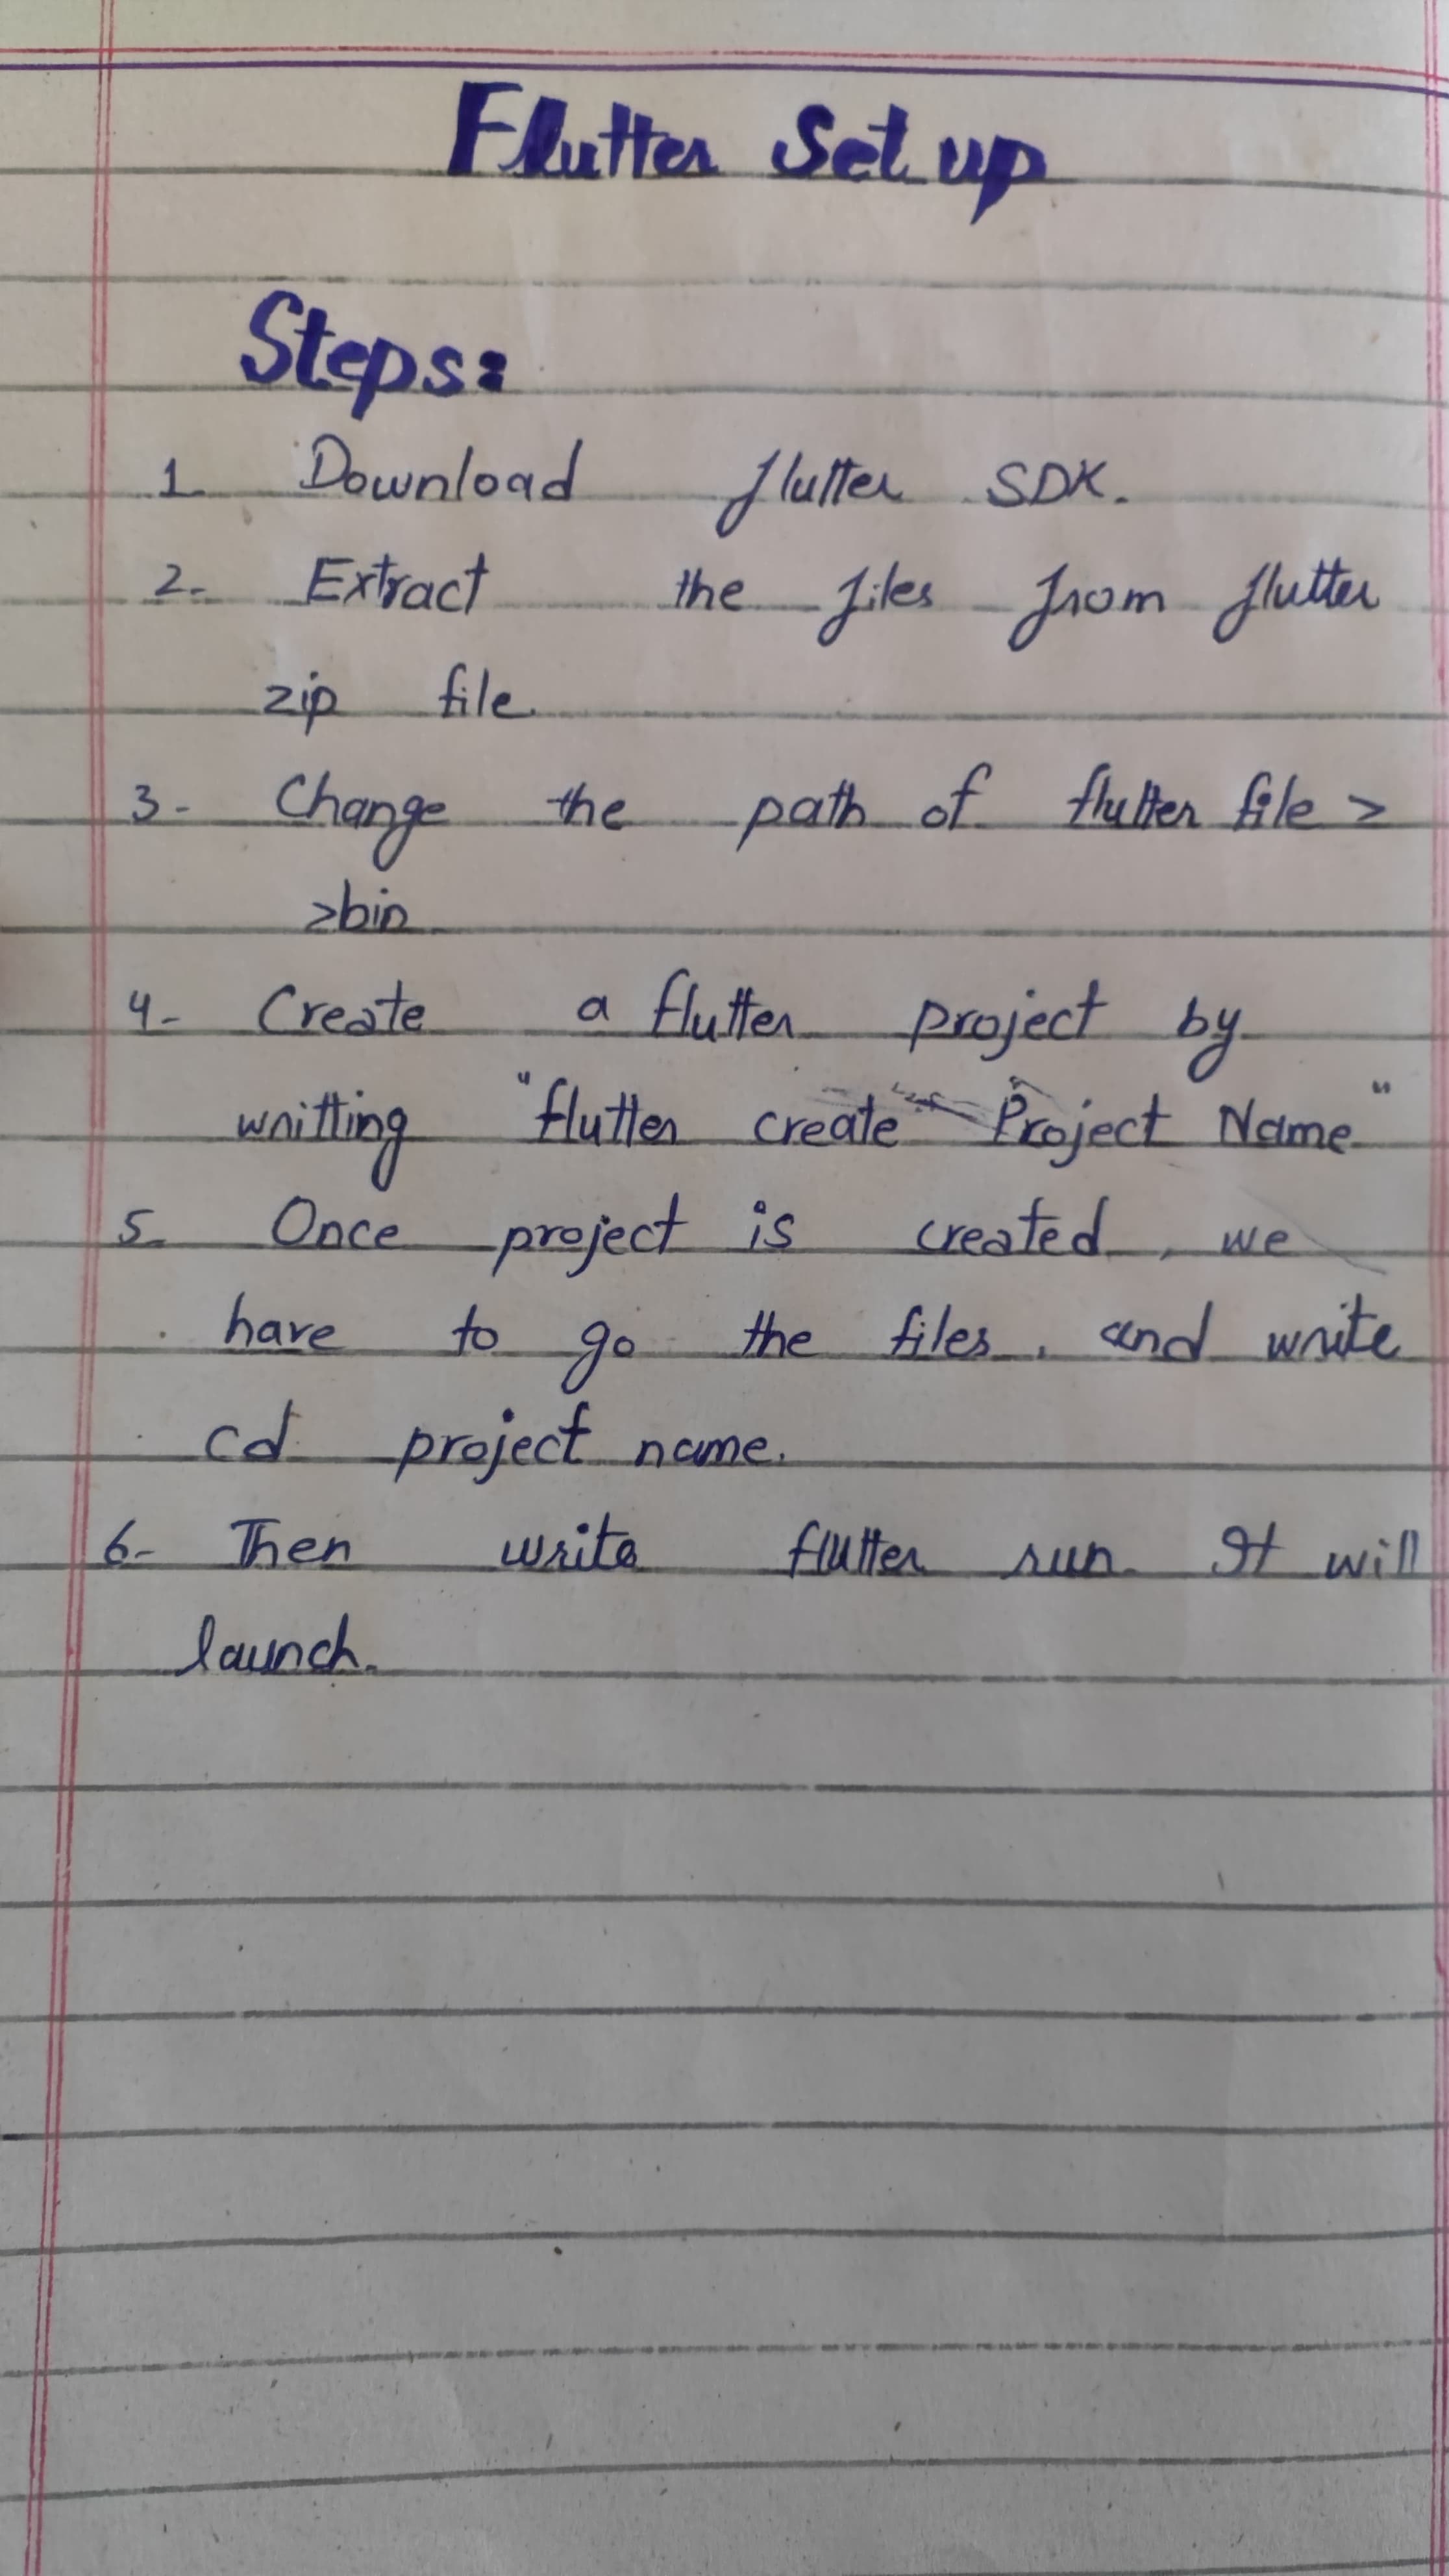 Flutter Set up
Steps:
1. Download flutter SDK.
2- Extract the files from flutter
zip file.
3- Change the path of flutter file >
>bin
4- Create a flutter project by
writting "flutter create Project Name"
5- Once project is created, we
have to go the files, and write
cd project name.
6- Then write flutter run. It will
launch.